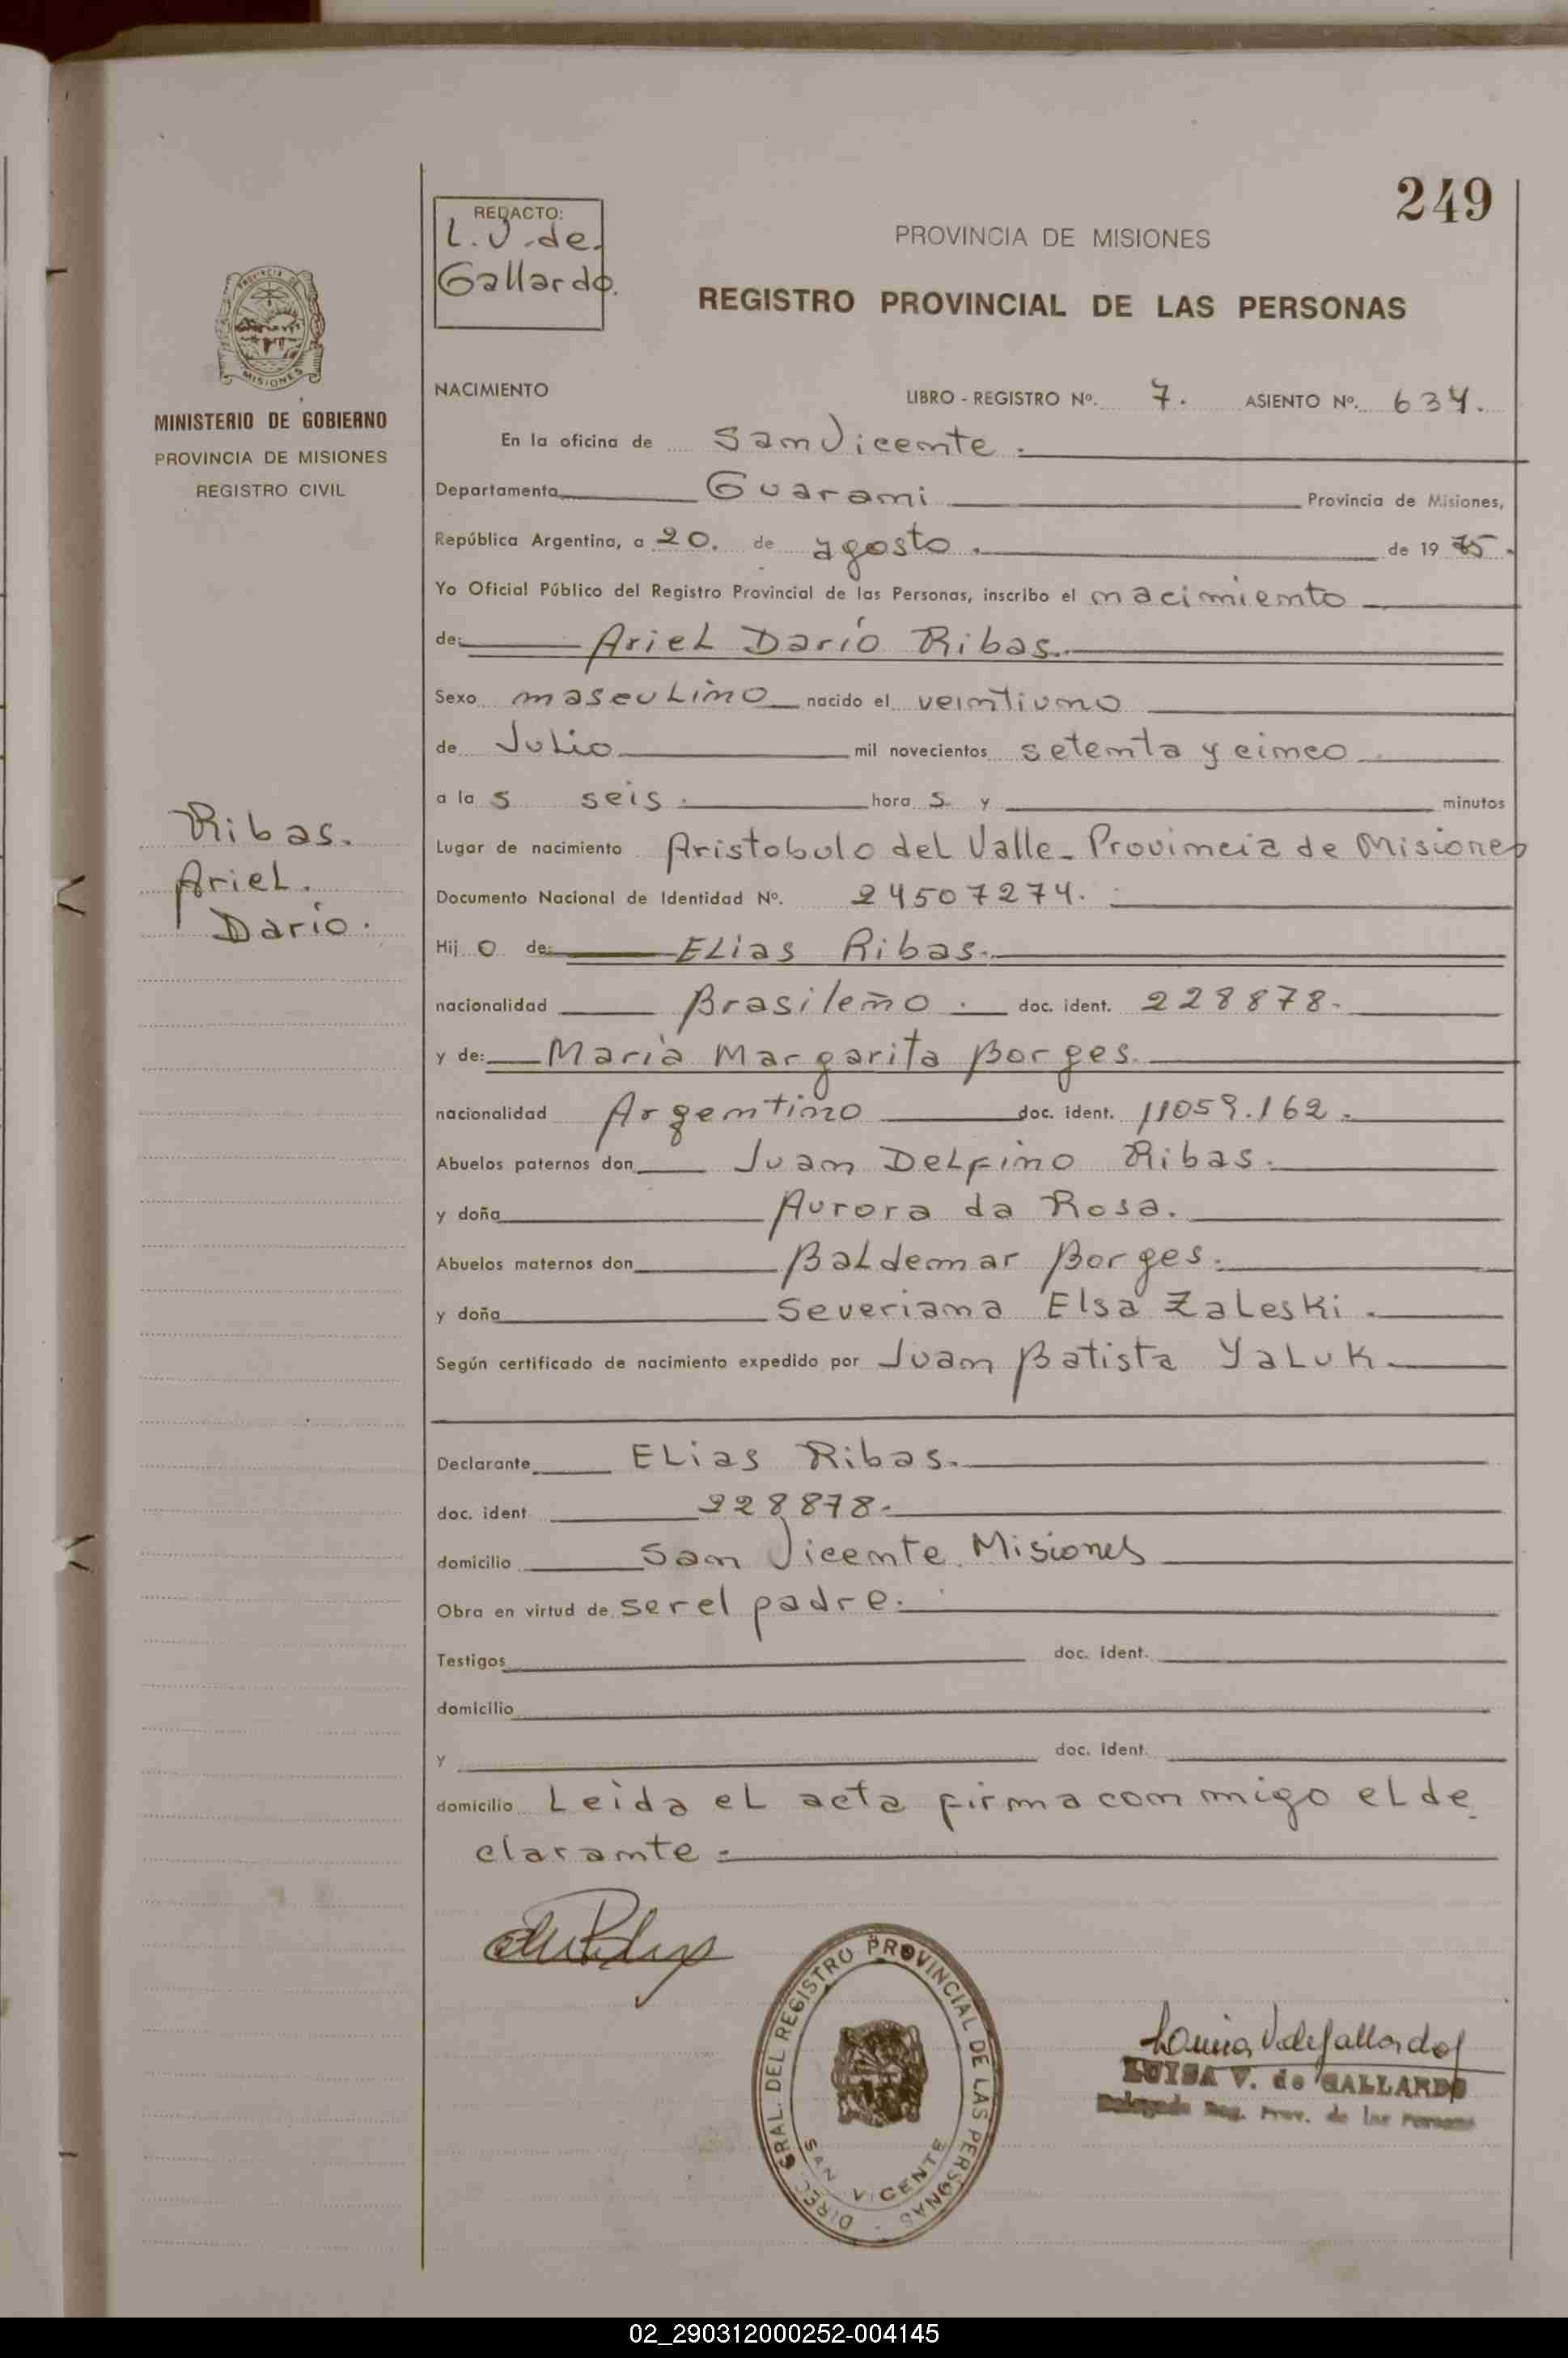 249
REDACTO:
L. V. de.
Gallardo.
PROVINCIA DE MISIONES
REGISTRO PROVINCIAL DE LAS PERSONAS
PROVINCIA DE
MISIONES
MINISTERIO DE GOBIERNO
PROVINCIA DE MISIONES
REGISTRO CIVIL
NACIMIENTO LIBRO - REGISTRO Nº. 7. ASIENTO Nº. 634.
En la oficina de San Vicente.
Departamento Guarani Provincia de Misiones,
República Argentina, a 20. de agosto. de 1975.
Yo Oficial Público del Registro Provincial de las Personas, inscribo el nacimiento
de: Ariel Darío Ribas.
Sexo masculino nacido el veintiuno
de Julio mil novecientos setenta y cinco
a la s seis. hora s y minutos
Ribas.
Ariel.
Darío.
Lugar de nacimiento Aristobulo del Valle - Provincia de Misiones
Documento Nacional de Identidad Nº. 24507274.
Hij o de: Elias Ribas.
nacionalidad Brasileño. doc. ident. 228878.
y de: María Margarita Borges.
nacionalidad Argentino doc. ident. 11059.162.
Abuelos paternos don Juan Delfino Ribas.
y doña Aurora da Rosa.
Abuelos maternos don Baldemar Borges.
y doña Severiana Elsa Zaleski.
Según certificado de nacimiento expedido por Juan Batista Yaluk.
Declarante Elias Ribas.
doc. ident 228878.
domicilio San Vicente. Misiones
Obra en virtud de ser el padre.
Testigos doc. ident.
domicilio
y doc. ident.
domicilio Leida el acta firma con migo el de
clarante.
DIREC. GRAL. DEL REGISTRO PROVINCIAL DE LAS PERSONAS
SAN VICENTE
Luisa V de Gallardo
LUISA V. de GALLARDO
Delegada Reg. Prov. de las Personas
02_290312000252-004145